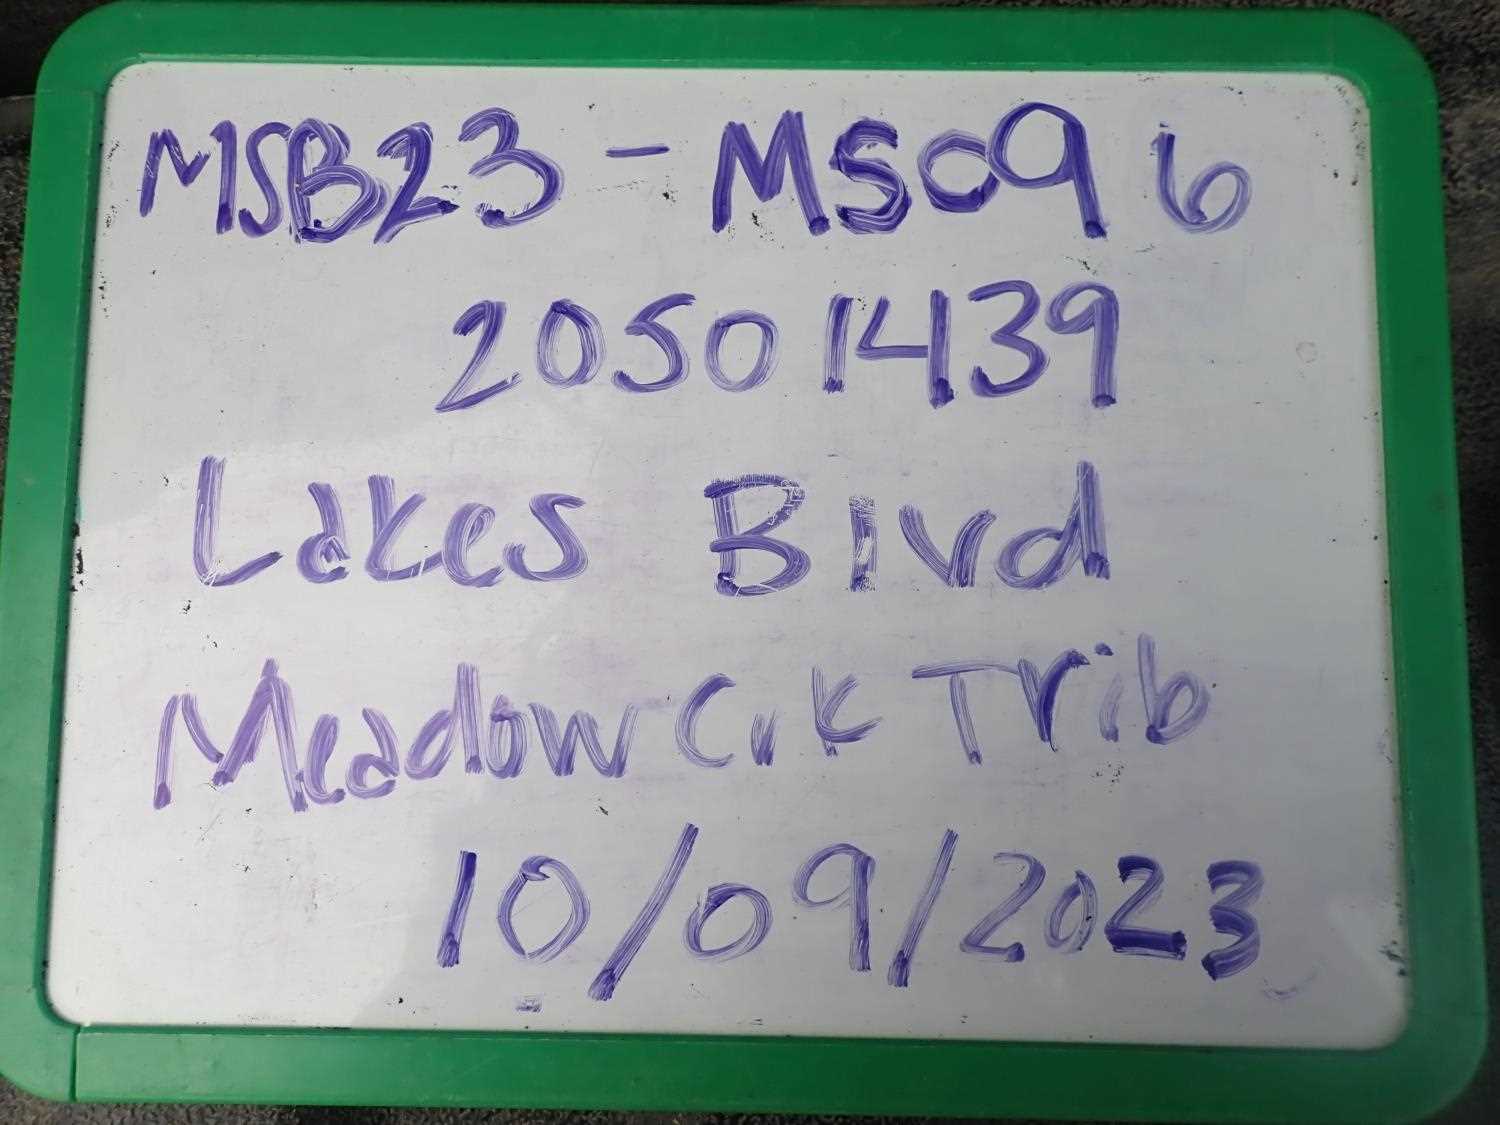 MSB23-MS096
20501439
Lakes Blvd
Meadow Crk Trib
10/09/2023